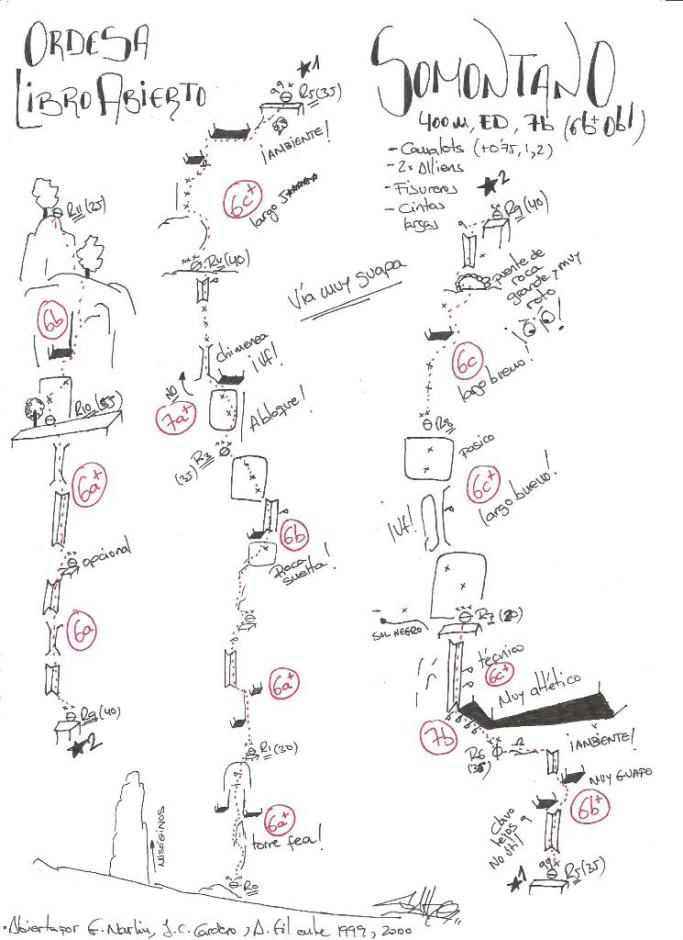 ORDESA
LIBRO ABIERTO
SOMONTANO
400m, ED, 7b (6b+ obl)
- Camalots (+0'75, 1, 2)
- 2x Alliens
- Fisureros
- Cintas
largas
★1
R5 (35)
¡AMBIENTE!
6c+
largo
R4 (40)
Vía muy guapa
chimenea
¡Uf!
NO
7a+
A bloque!
R3
(35)
6b
Roca
suelta!
6a+
R1 (30)
6a+
torre fea!
R0
MISÓGINOS
R11 (25)
6b
R10 (55)
6a+
opcional
6a
R9 (40)
★2
★2
R9 (40)
puente de
roca
grande y muy
roto
6c
largo bueno!
R8
pasico
6c+
largo bueno!
¡Uf!
R7 (20)
SOL NEGRO
técnico
6c+
Muy atlético
7b
R6
(35)
¡AMBIENTE!
MUY GUAPO
6b+
Clavo
lejos
No útil!
★1
R5 (35)
Abierta por
J.C. Cordero, D. Gil
1999, 2000